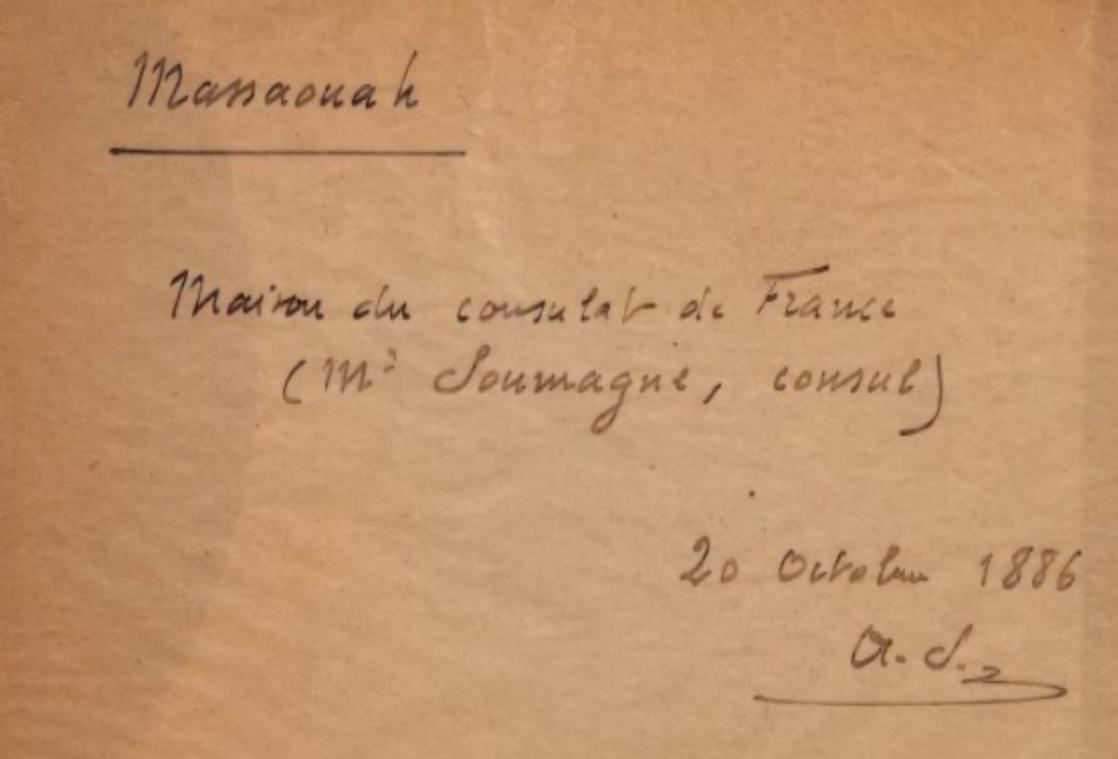 Massaouah
Maison du consulat de France
(Mr Soumagne, consul)
20 Octobre 1886
A. S.